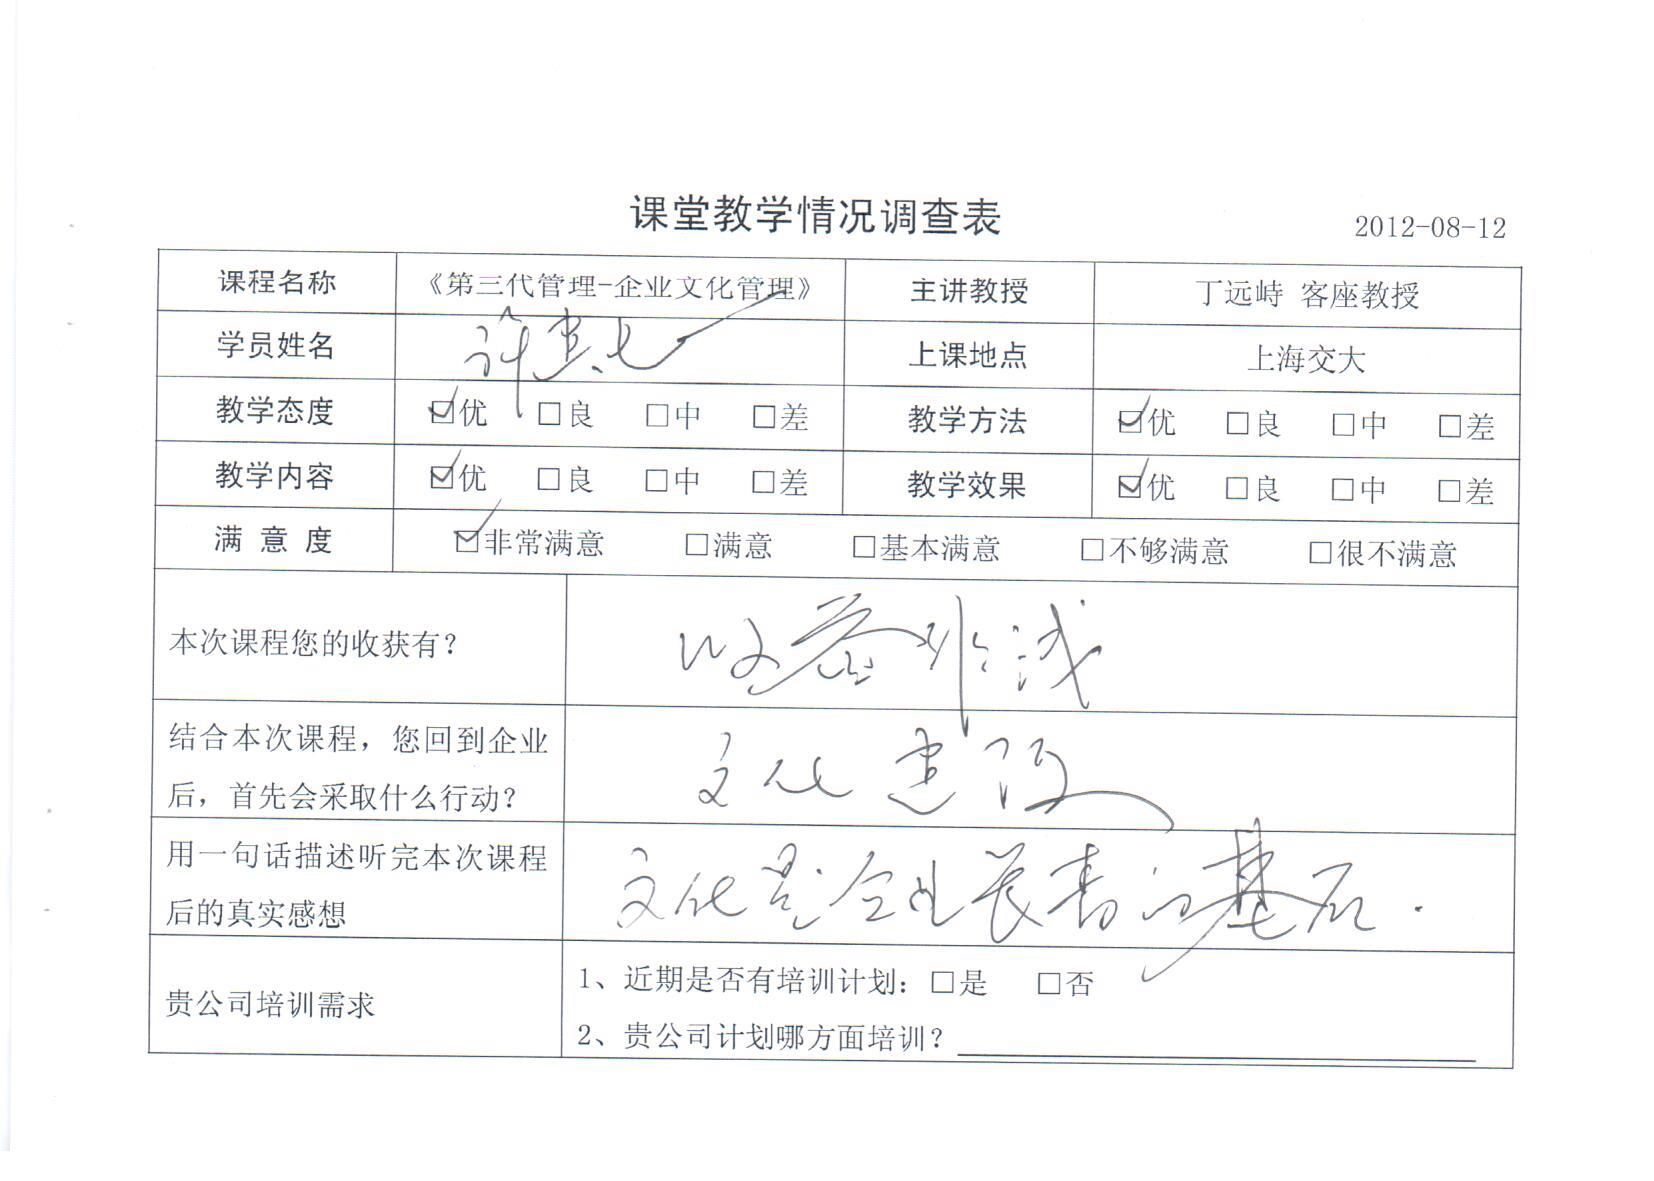 课堂教学情况调查表
2012-08-12
课程名称 《第三代管理-企业文化管理》 主讲教授 丁远峙 客座教授
学员姓名 许 上课地点 上海交大
教学态度 ☑优 □良 □中 □差 教学方法 ☑优 □良 □中 □差
教学内容 ☑优 □良 □中 □差 教学效果 ☑优 □良 □中 □差
满 意 度 ☑非常满意 □满意 □基本满意 □不够满意 □很不满意
本次课程您的收获有? 收益非浅
结合本次课程,您回到企业
后,首先会采取什么行动?
文化建设
用一句话描述听完本次课程
后的真实感想
文化是企业长青的基石.
贵公司培训需求
1、近期是否有培训计划: □是 □否
2、贵公司计划哪方面培训?